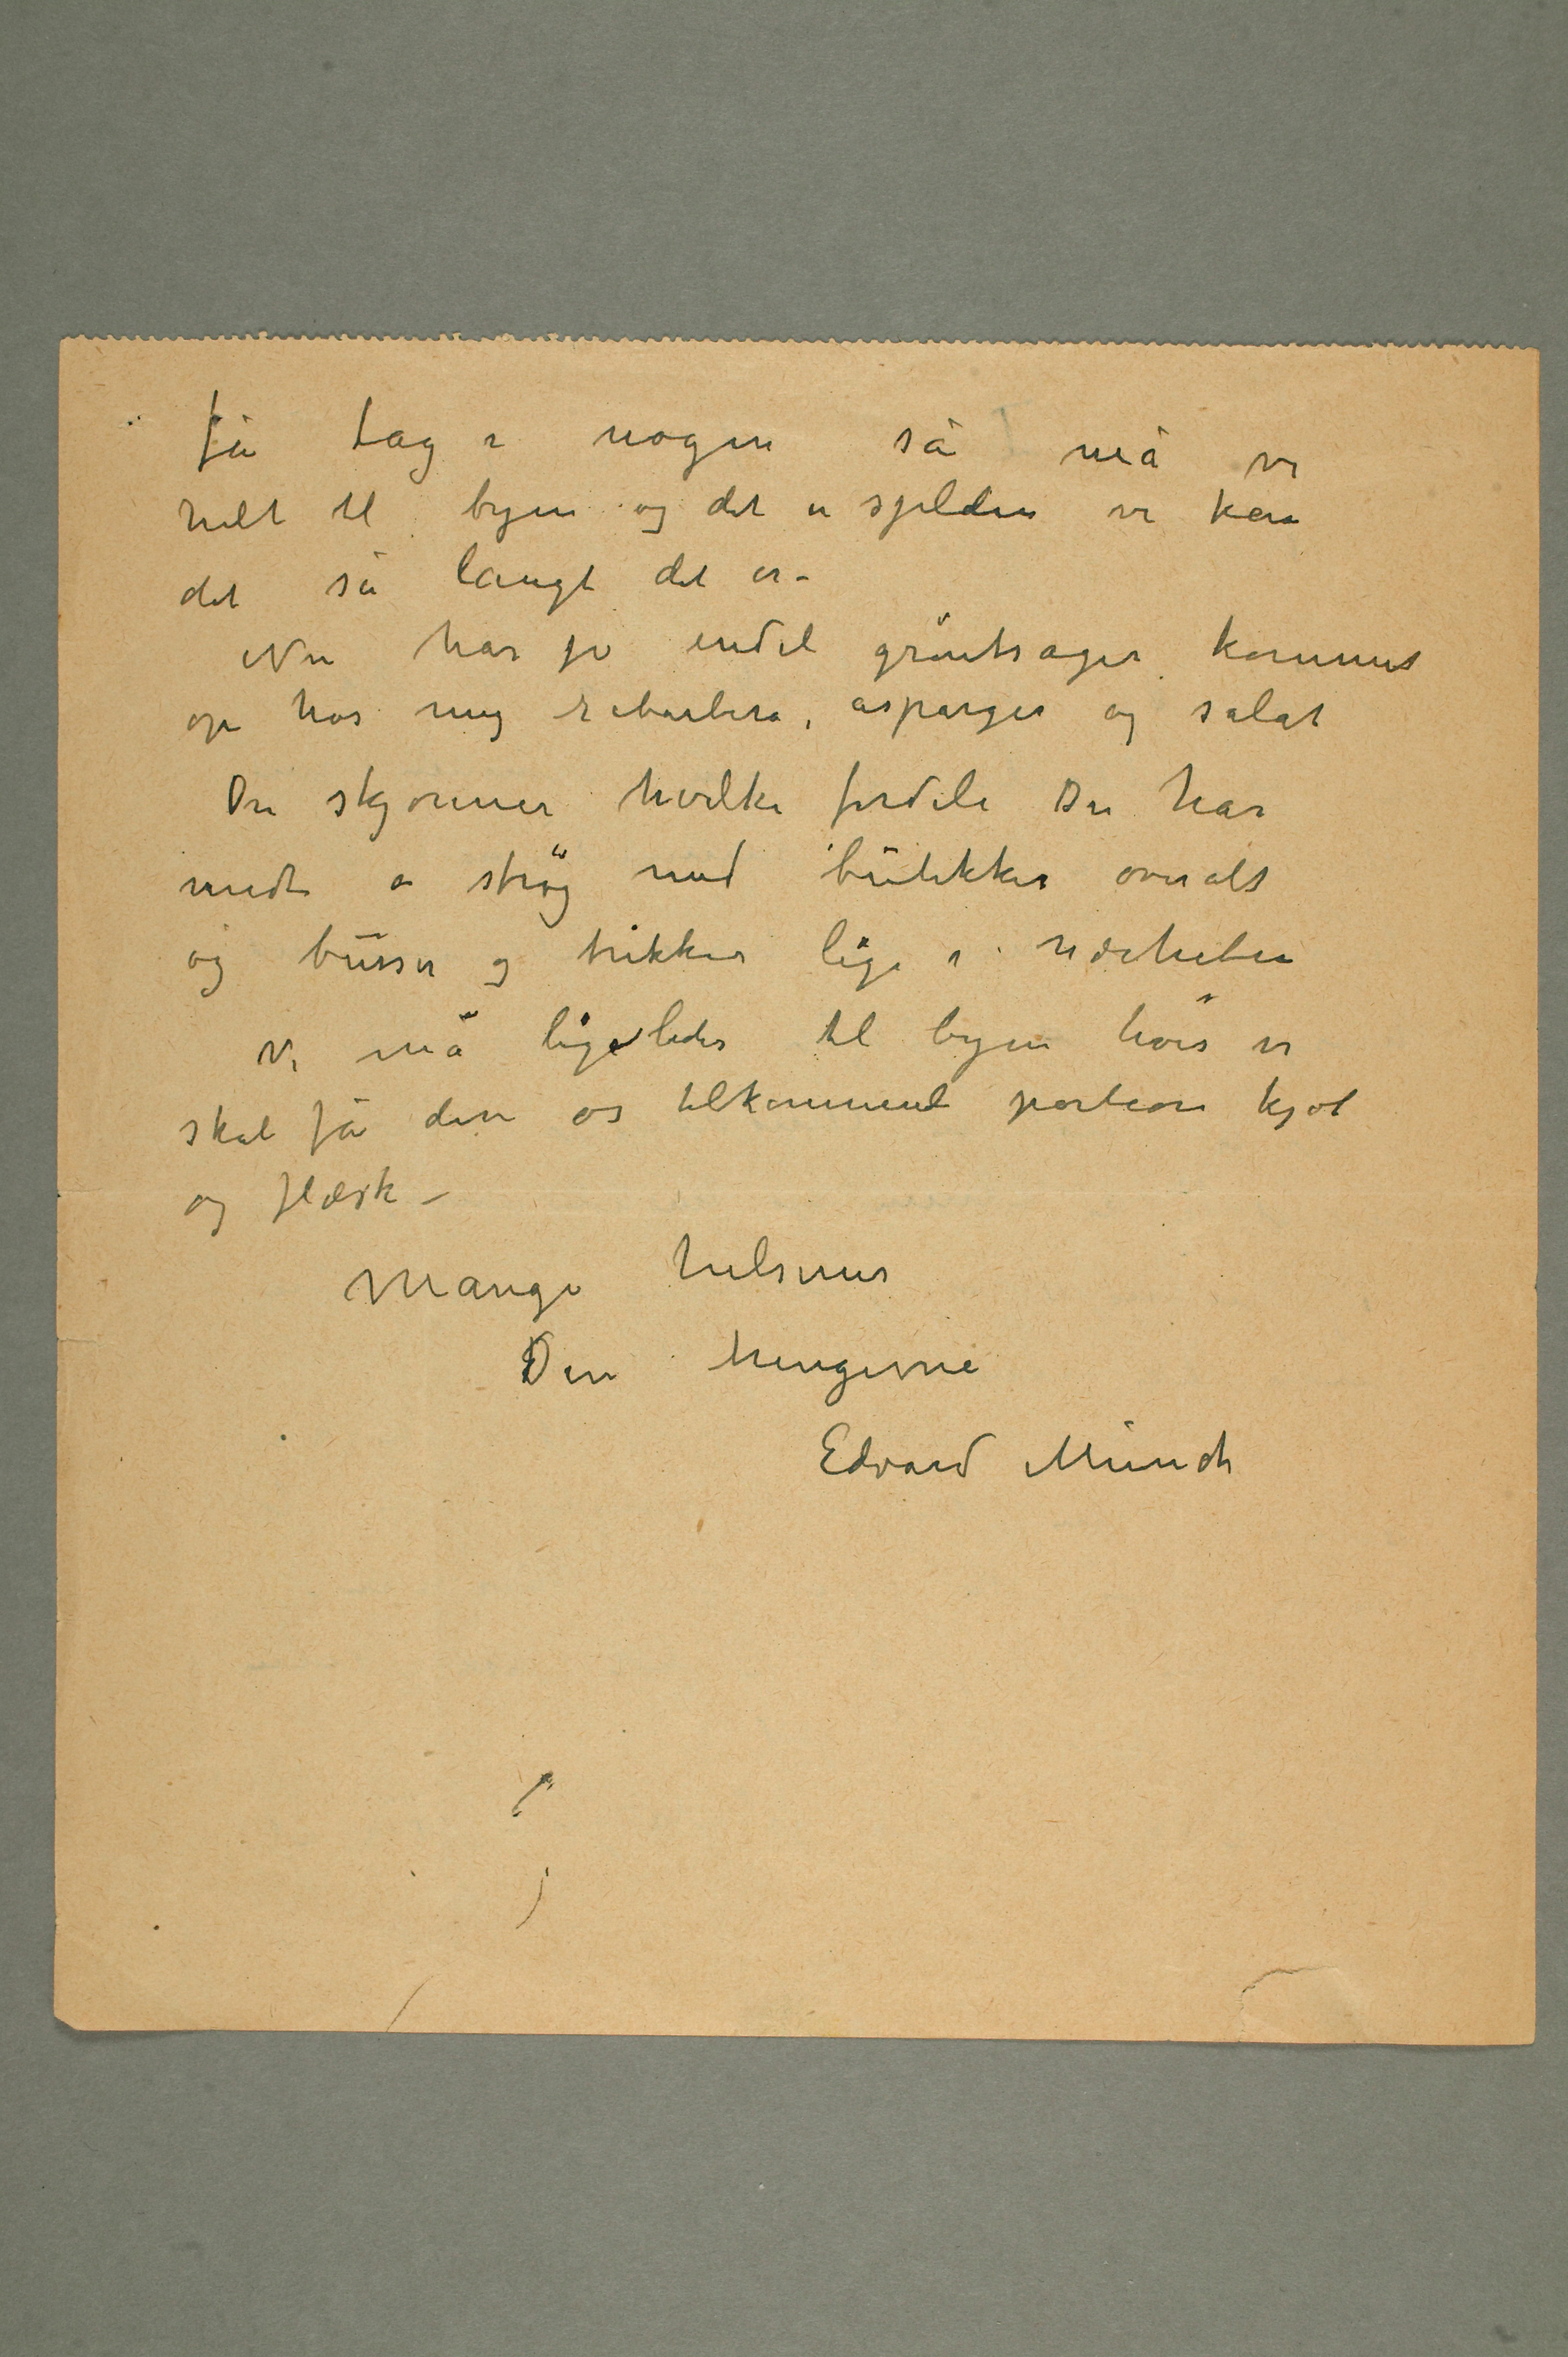 få tag i nogen så må vi
helt til byen og det er sjelden vi kan
det så langt det er –
Nu har jo endel grøntsager kommet
op hos mig rabarbra, asparges og salat
Du skjønner hvilke fordele Du har
midt i strøg med butikker overalt
og busser og trikker lige i nærheten
Vi må ligeledes til byen hvis vi
skal få den os tilkommende portion kjøt
og flæsk –
Mange hilsener
Din hengivne
Edvard Munch